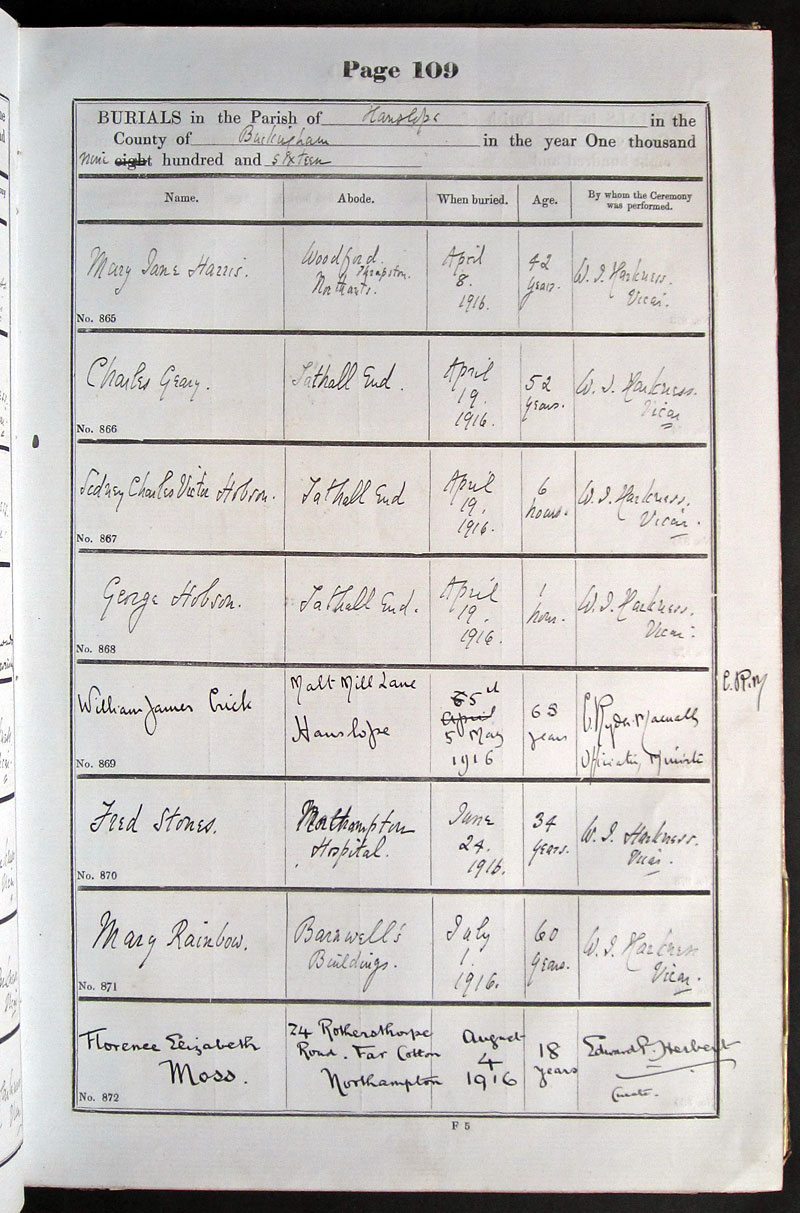 Page 109
BURIALS in the Parish of Hanslope in the
County of Buckingham in the year One thousand
nine eight hundred and sixteen
Name. Abode. When buried. Age. By whom the Ceremony was performed.
Mary Jane Harris.
No. 865
Woodford.
Thrapston.
Northants.
April
8.
1916.
42
years.
W. J. Harkness.
Vicar.
Charles Geary.
No. 866
Tathall End.
April
19.
1916.
52
years.
W. J. Harkness.
Vicar
Sidney Charles Victor Hobson.
No. 867
Tathall End
April
19.
1916.
6
hours.
W. J. Harkness.
Vicar.
George Hobson.
No. 868
Tathall End.
April
19.
1916.
1
hour.
W. J. Harkness.
Vicar.
William James Crick
No. 869
Malt Mill Lane
Hanslope
April
5 May
1916
years
C. Ryder
Officiating Minister
C.R.M
Fred Stones.
No. 870
Northampton
Hospital.
June
24.
1916.
34
years.
W. J. Harkness.
Vicar.
Mary Rainbow.
No. 871
Barnwell's
Buildings.
July
1.
1916.
60
years.
W. J. Harkness
Vicar.
Florence Elizabeth
Moss.
No. 872
24 Rothersthorpe
Road. Far Cotton
Northampton
August
4
1916
18
years
Edward P. Herbert
Curate.
F 5